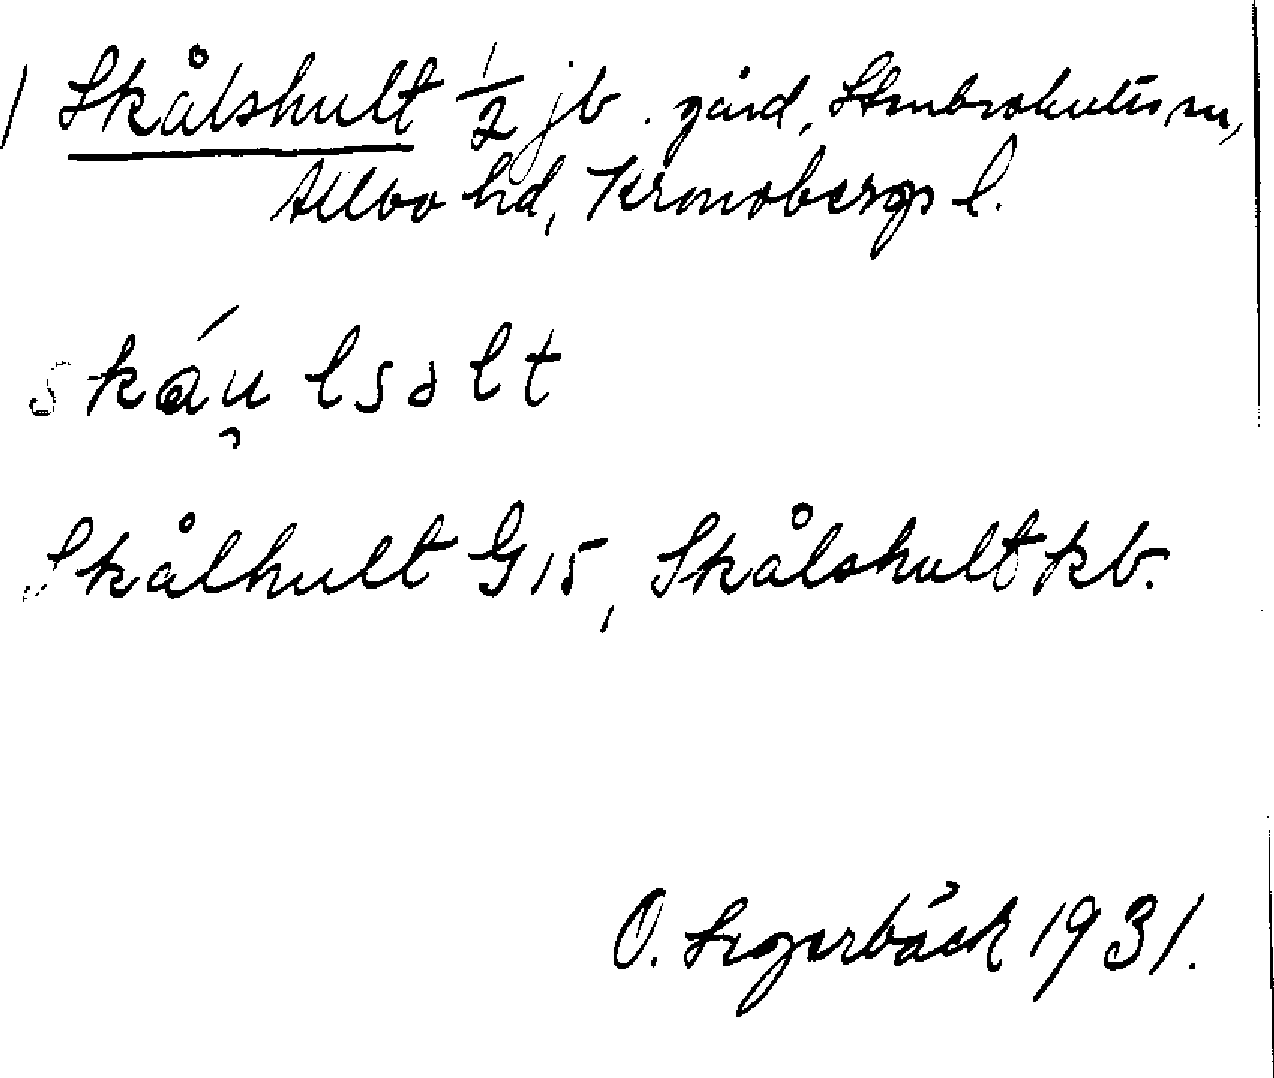 1 Skålshult 1/2 jb. gård, Stenbrohults sn,
Allbo hd, Kronobergs l.
skáu̡ lsalt
Skålhult G 15, Skålshult kb.
O. Segerbäck 1931.